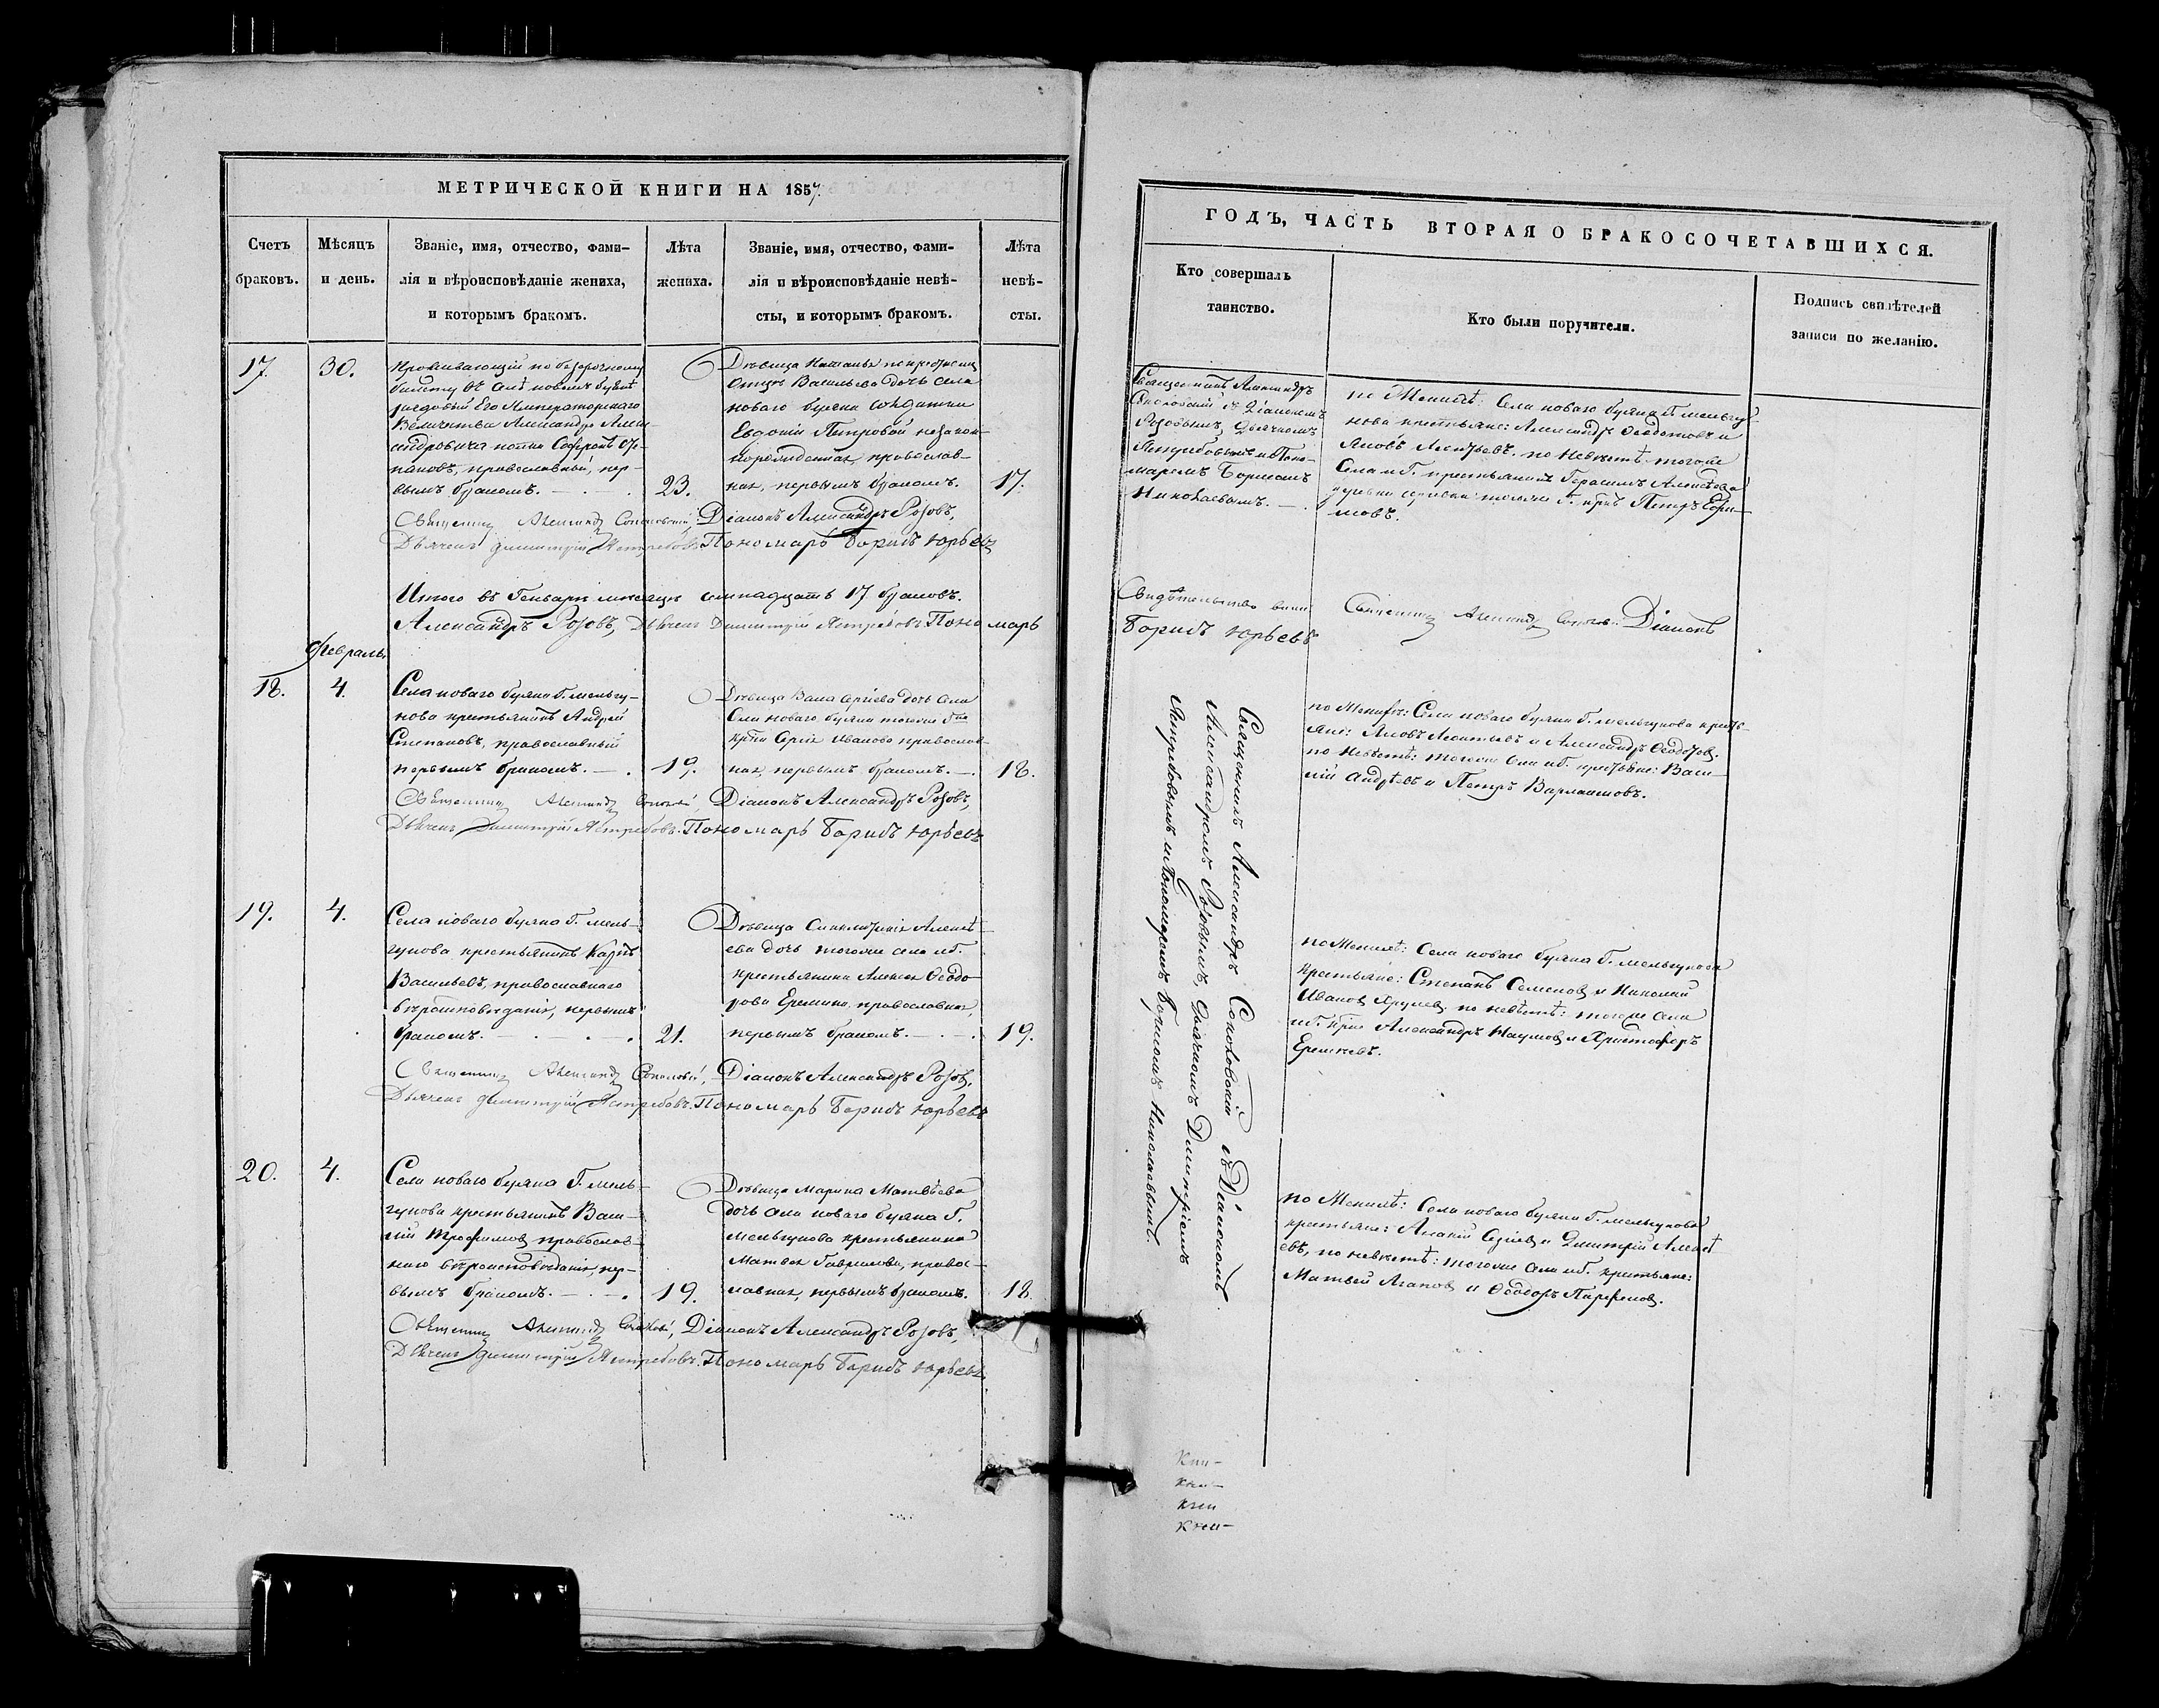 МЕТРИЧЕСКОЙ КНИГИ НА 1857.
Счетъ браковъ.
Мѣсяцъ и день.
Званіе, имя, отчество, фами-
лія и вѣроисповѣданіе жениха,
и которымъ бракомъ.
Лѣта жениха.
Званіе, имя, отчество, фами-
лія и вѣроисповѣданіе невѣ-
сты, и которымъ бракомъ.
Лѣта невѣ-
сты.
17.
30.
Проживающій по безсрочному
билету въ селѣ новомъ Буянѣ
рядовый Его Императорскаго
Величества Александра Алек-
сандровича полка Софронъ Сте-
пановъ, православный, пер-
вымъ бракомъ.
23.
Дѣвица Наталья
Васильева дочь села
новаго буяна солдатки
Евдокіи Петровой незакон-
норожденная, православ-
ная, первымъ бракомъ.
17.
Священникъ Александръ Соколовскій, Діаконъ Александръ Розовъ,
Дьячекъ Димитрій Ястребовъ. Пономарь Борисъ Юрьевъ
Итого въ Генварѣ мѣсяцѣ семнадцать 17 браковъ.
Александръ Розовъ, Дьячекъ Димитрій Ястребовъ Пономарь
Февраль.
18.
4.
Села новаго буяна Г. мельгу-
нова крестьянинъ Андрей
Степановъ, православный
первымъ бракомъ.
19.
Дѣвица Сергіева дочь
Села новаго буяна тогоже Г-на
кр-на Сергія Иванова православ-
ная, первымъ бракомъ.
18.
Священникъ Александръ Соколовскій, Діаконъ Александръ Розовъ,
Дьячекъ Димитрій Ястребовъ. Пономарь Борисъ Юрьевъ
19.
4.
Села новаго буяна Г. мель-
гунова крестьянинъ Карпъ
Васильевъ, православнаго
вѣроисповѣданія, первымъ
бракомъ.
21.
Дѣвица Синклитикія Алексѣ-
ева дочь тогоже села и Г.
крестьянина Алексея Ѳеодо-
рова Еремина, православная,
первымъ бракомъ.
19.
Священникъ Александръ Соколовскій, Діаконъ Александръ Розовъ,
Дьячекъ Димитрій Ястребовъ. Пономарь Борисъ Юрьевъ
20.
4.
Села новаго буяна Г. мель-
гунова крестьянинъ Васи-
лій Трофимовъ, православ-
наго вѣроисповѣданія, пер-
вымъ бракомъ.
19.
Дѣвица Марина Матвѣева
дочь села новаго буяна Г.
мельгунова крестьянина
Матвея Гаврилова, правос-
лавная, первымъ бракомъ.
18.
Священникъ Александръ Соколовскій, Діаконъ Александръ Розовъ,
Дьячекъ Димитрій Ястребовъ. Пономарь Борисъ Юрьевъ
ГОДЪ, ЧАСТЬ ВТОРАЯ О БРАКОСОЧЕТАВШИХСЯ.
Кто совершалъ
таинство.
Кто были поручители.
Подпись свидѣтелей
записи по желанію.
Священникъ Александръ
Соколовскій съ Діакономъ
Розовымъ, Дьячкомъ
Ястребовымъ и Поно-
маремъ Борисомъ
Николаевымъ.
по Женихѣ: Села новаго буяна Г. мельгу-
нова крестьяне: Александръ Ѳеодотовъ и
Яковъ Леонтьевъ. по Невѣстѣ: тогоже
Села и Г. крестьянинъ Герасимъ Алексѣевъ
Петръ
Свидѣтельство
Священникъ Александръ Соколов: Діаконъ
Борисъ Юрьевъ
Священникъ Александръ Соколовскій съ Діакономъ
Александромъ Розовымъ, Дьячкомъ Димитріемъ
Ястребовымъ и Пономаремъ Борисомъ Николаевымъ.
по Женихѣ: Села новаго буяна Г. мельгунова кресть-
яне: Яковъ Леонтьевъ и Александръ Ѳеодотовъ,
по Невѣстѣ: тогоже села и Г. крестьяне: Васи-
лій Андрѣевъ и Петръ Варламовъ.
по Женихѣ: Села новаго буяна Г. мельгунова
крестьяне: Степанъ Семеновъ и Николай
Ивановъ по невѣстѣ: тогоже села
и Г. кр-не Александръ Наумовъ и Христофоръ
по Женихѣ: Села новаго буяна Г. мельгунова
крестьяне: Сергіевъ и Димитрій Алексѣ-
евъ, по невѣстѣ: тогоже села и Г. крестьяне:
Матвей Агаповъ и Ѳеодоръ Парфеновъ.
Кни-
кни-
кни
кни-